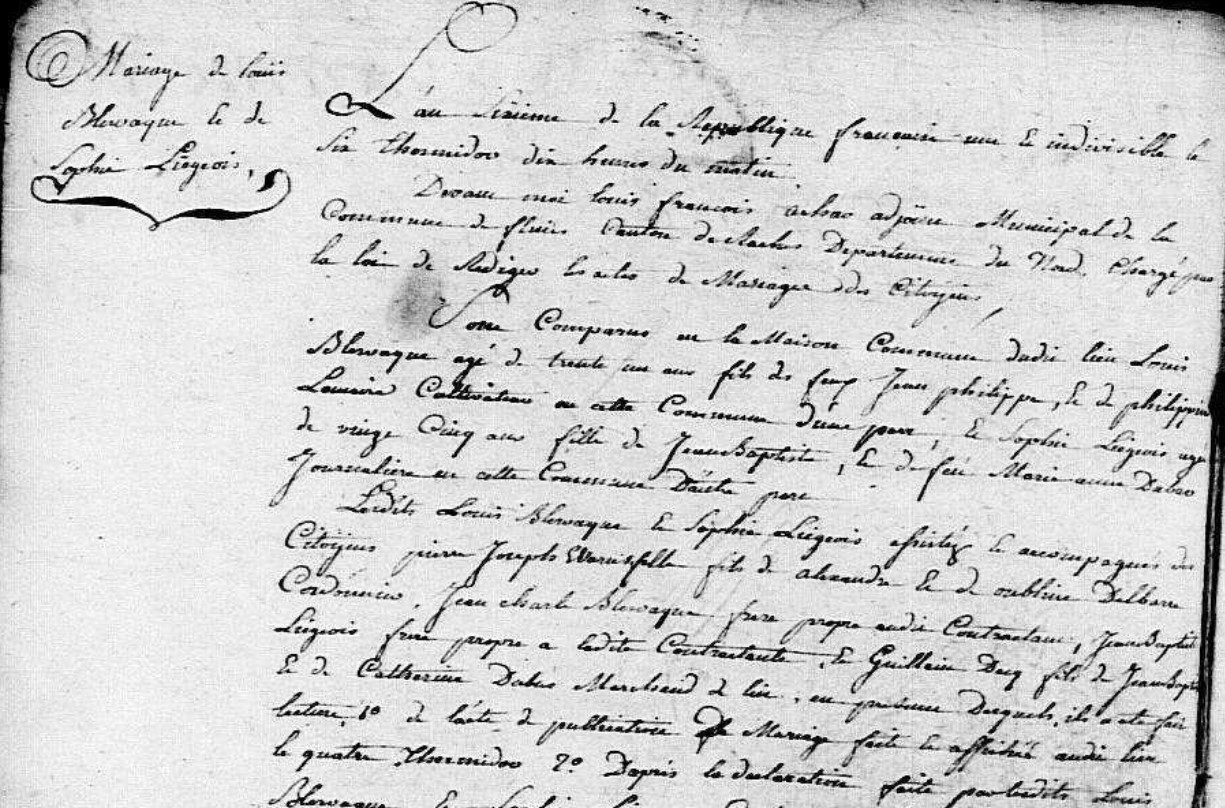 Mariage de louis
Blervaque et de
Sophie Liégeois,
L'an sixieme de la Republique francaise une et indivisible le
six thermidor dix heures du matin
Devant moi louis francois adjoint Municipal de la
Commune de flines Canton Departement du Nord, Chargé par
la loi de Rediger les actes de Mariages des Citoyens,
Sont Comparus en la Maison Commune dudit lieu Louis
Blervaque agé de trente un ans fils de feux Jean philippe, et de philippine
Cultivateur en cette Commune d'une part, et Sophie Liégeois agé
de vingt Cinq ans fille de Jean Baptiste, et de feu Marie anne
Journaliere en cette Commune D'autre part
Lesdits Louis Blervaque et Sophie Liégeois assistéz et accompagnés des
Citoyens pierre Joseph fils de alexandre et de Delbarre
Cordonnier, Jean Charle Blervaque frere propre audit Contractant, Jean Baptiste
Liégeois frere propre a ladite Contractante, et Guillain fils de
et de Catherine Marchand de lin, en presence Desquels, ils a eté fait
lecture, 1o de l'acte de publication De Mariage faite et affichée audit lieu
le quatre Thermidor 2o Dapres la declaration faite par lesdits Louis
Blervaque et Sophie